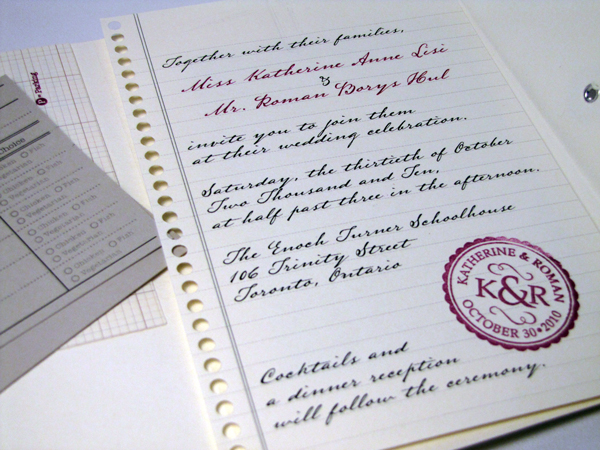 Together with their families,
Miss Katherine Anne Lesi
&
Mr. Roman Borys Hul
invite you to join them
at their wedding celebration.
Saturday, the thirtieth of October
Two Thousand and Ten,
at half past three in the afternoon.
The Enoch Turner Schoolhouse
106 Trinity Street
Toronto, Ontario
KATHERINE & ROMAN
K&R
OCTOBER 30•2010
Cocktails and
a dinner reception
will follow the ceremony.
Parking
Choice
Fish
Vegetarian
Chicken
Fish
Vegetarian
Chicken
Fish
Vegetarian
Chicken
Fish
Vegetarian